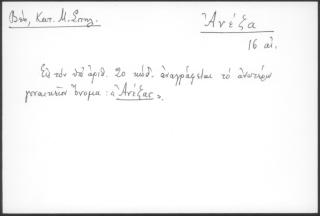 Βέη, Κατ. Μ. Σπηλ.
Ἀνέζα
16 αἰ.
Εἰς τὸν ὑπ' ἀριθ. 20 κώδ. ἀναγράφεται τὸ ἀνωτέρω
γυναικεῖον ὄνομα: «Ἀνέζας».